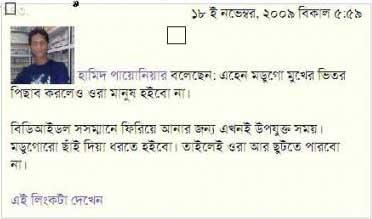 ১৮ ই নভেম্বর, ২০০৯ বিকাল ৫:৫৯
হামিদ পায়োনিয়ার বলেছেন: এহেন মড়ুগো মুখের ভিতর
পিছাব করলেও ওরা মানুষ হইবো না।
বিডিআইডল সসম্মানে ফিরিয়ে আনার জন্য এখনই উপযুক্ত সময়।
মড়ুগোরো ছাঁই দিয়া ধরতে হইবো। তাইলেই ওরা আর ছুটতে পারবো
না।
এই লিংকটা দেখেন